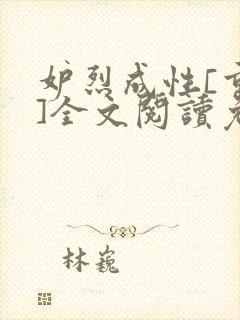 妒烈成性[
]全文閱讀
林巍